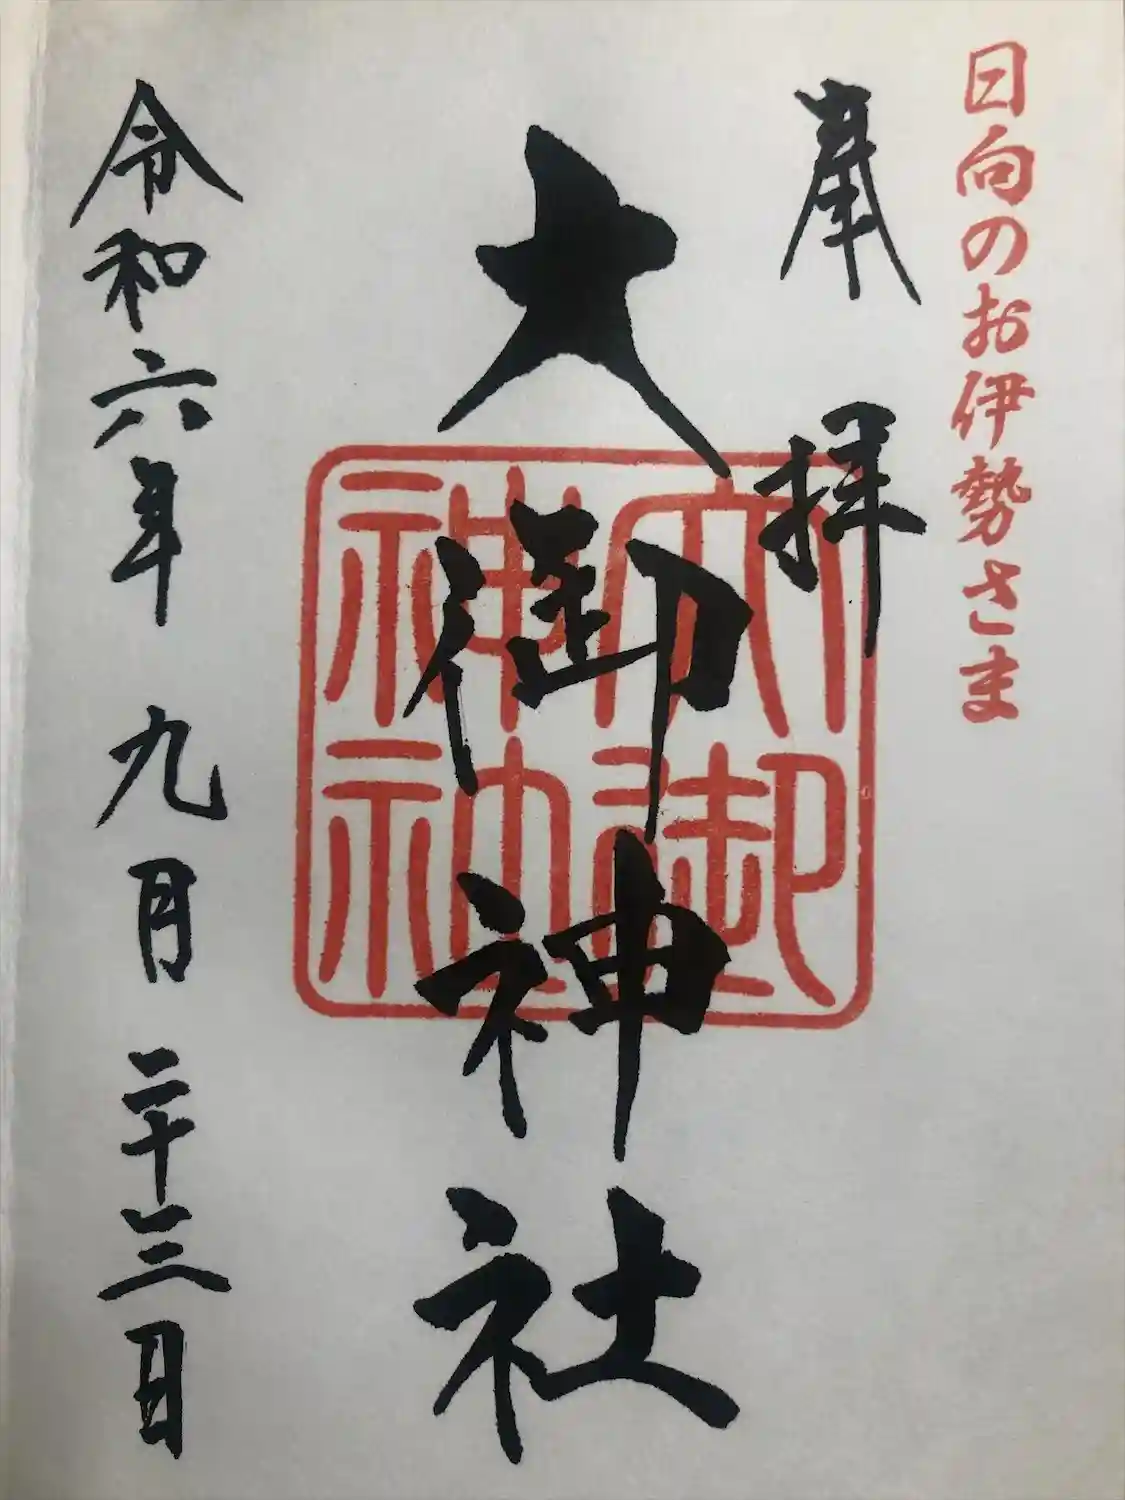 日向のお伊勢さま
奉拝
大御神社
大御
神社
令和六年九月二十三日